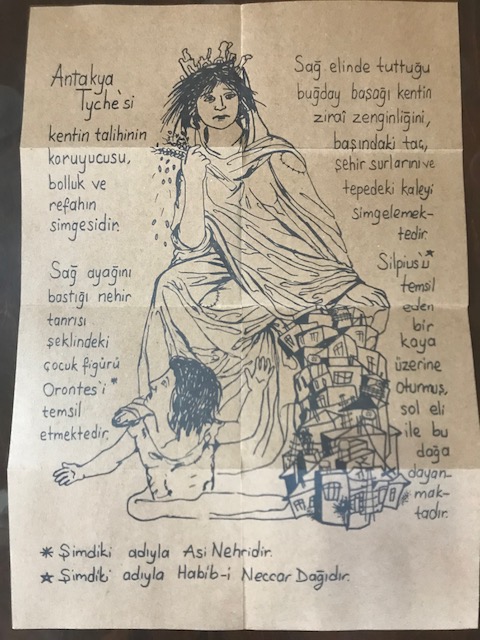 Antakya
Tyche'si
kentin talihinin
koruyucusu,
bolluk ve
refahın
simgesidir.
Sağ ayağını
bastığı nehir
tanrısı
şeklindeki
çocuk figürü
Orontes'i *
temsil
etmektedir.
Sağ elinde tuttuğu
buğday başağı kentin
ziraî zenginliğini,
başındaki taç,
şehir surlarını ve
tepedeki kaleyi
simgelemek-
tedir.
Silpius'u ★
temsil
eden
bir
kaya
üzerine
oturmuş,
sol eli
ile bu
dağa
dayan-
mak-
tadır.
* Şimdiki adıyla Asi Nehridir.
★ Şimdiki adıyla Habib-i Neccar Dağıdır.